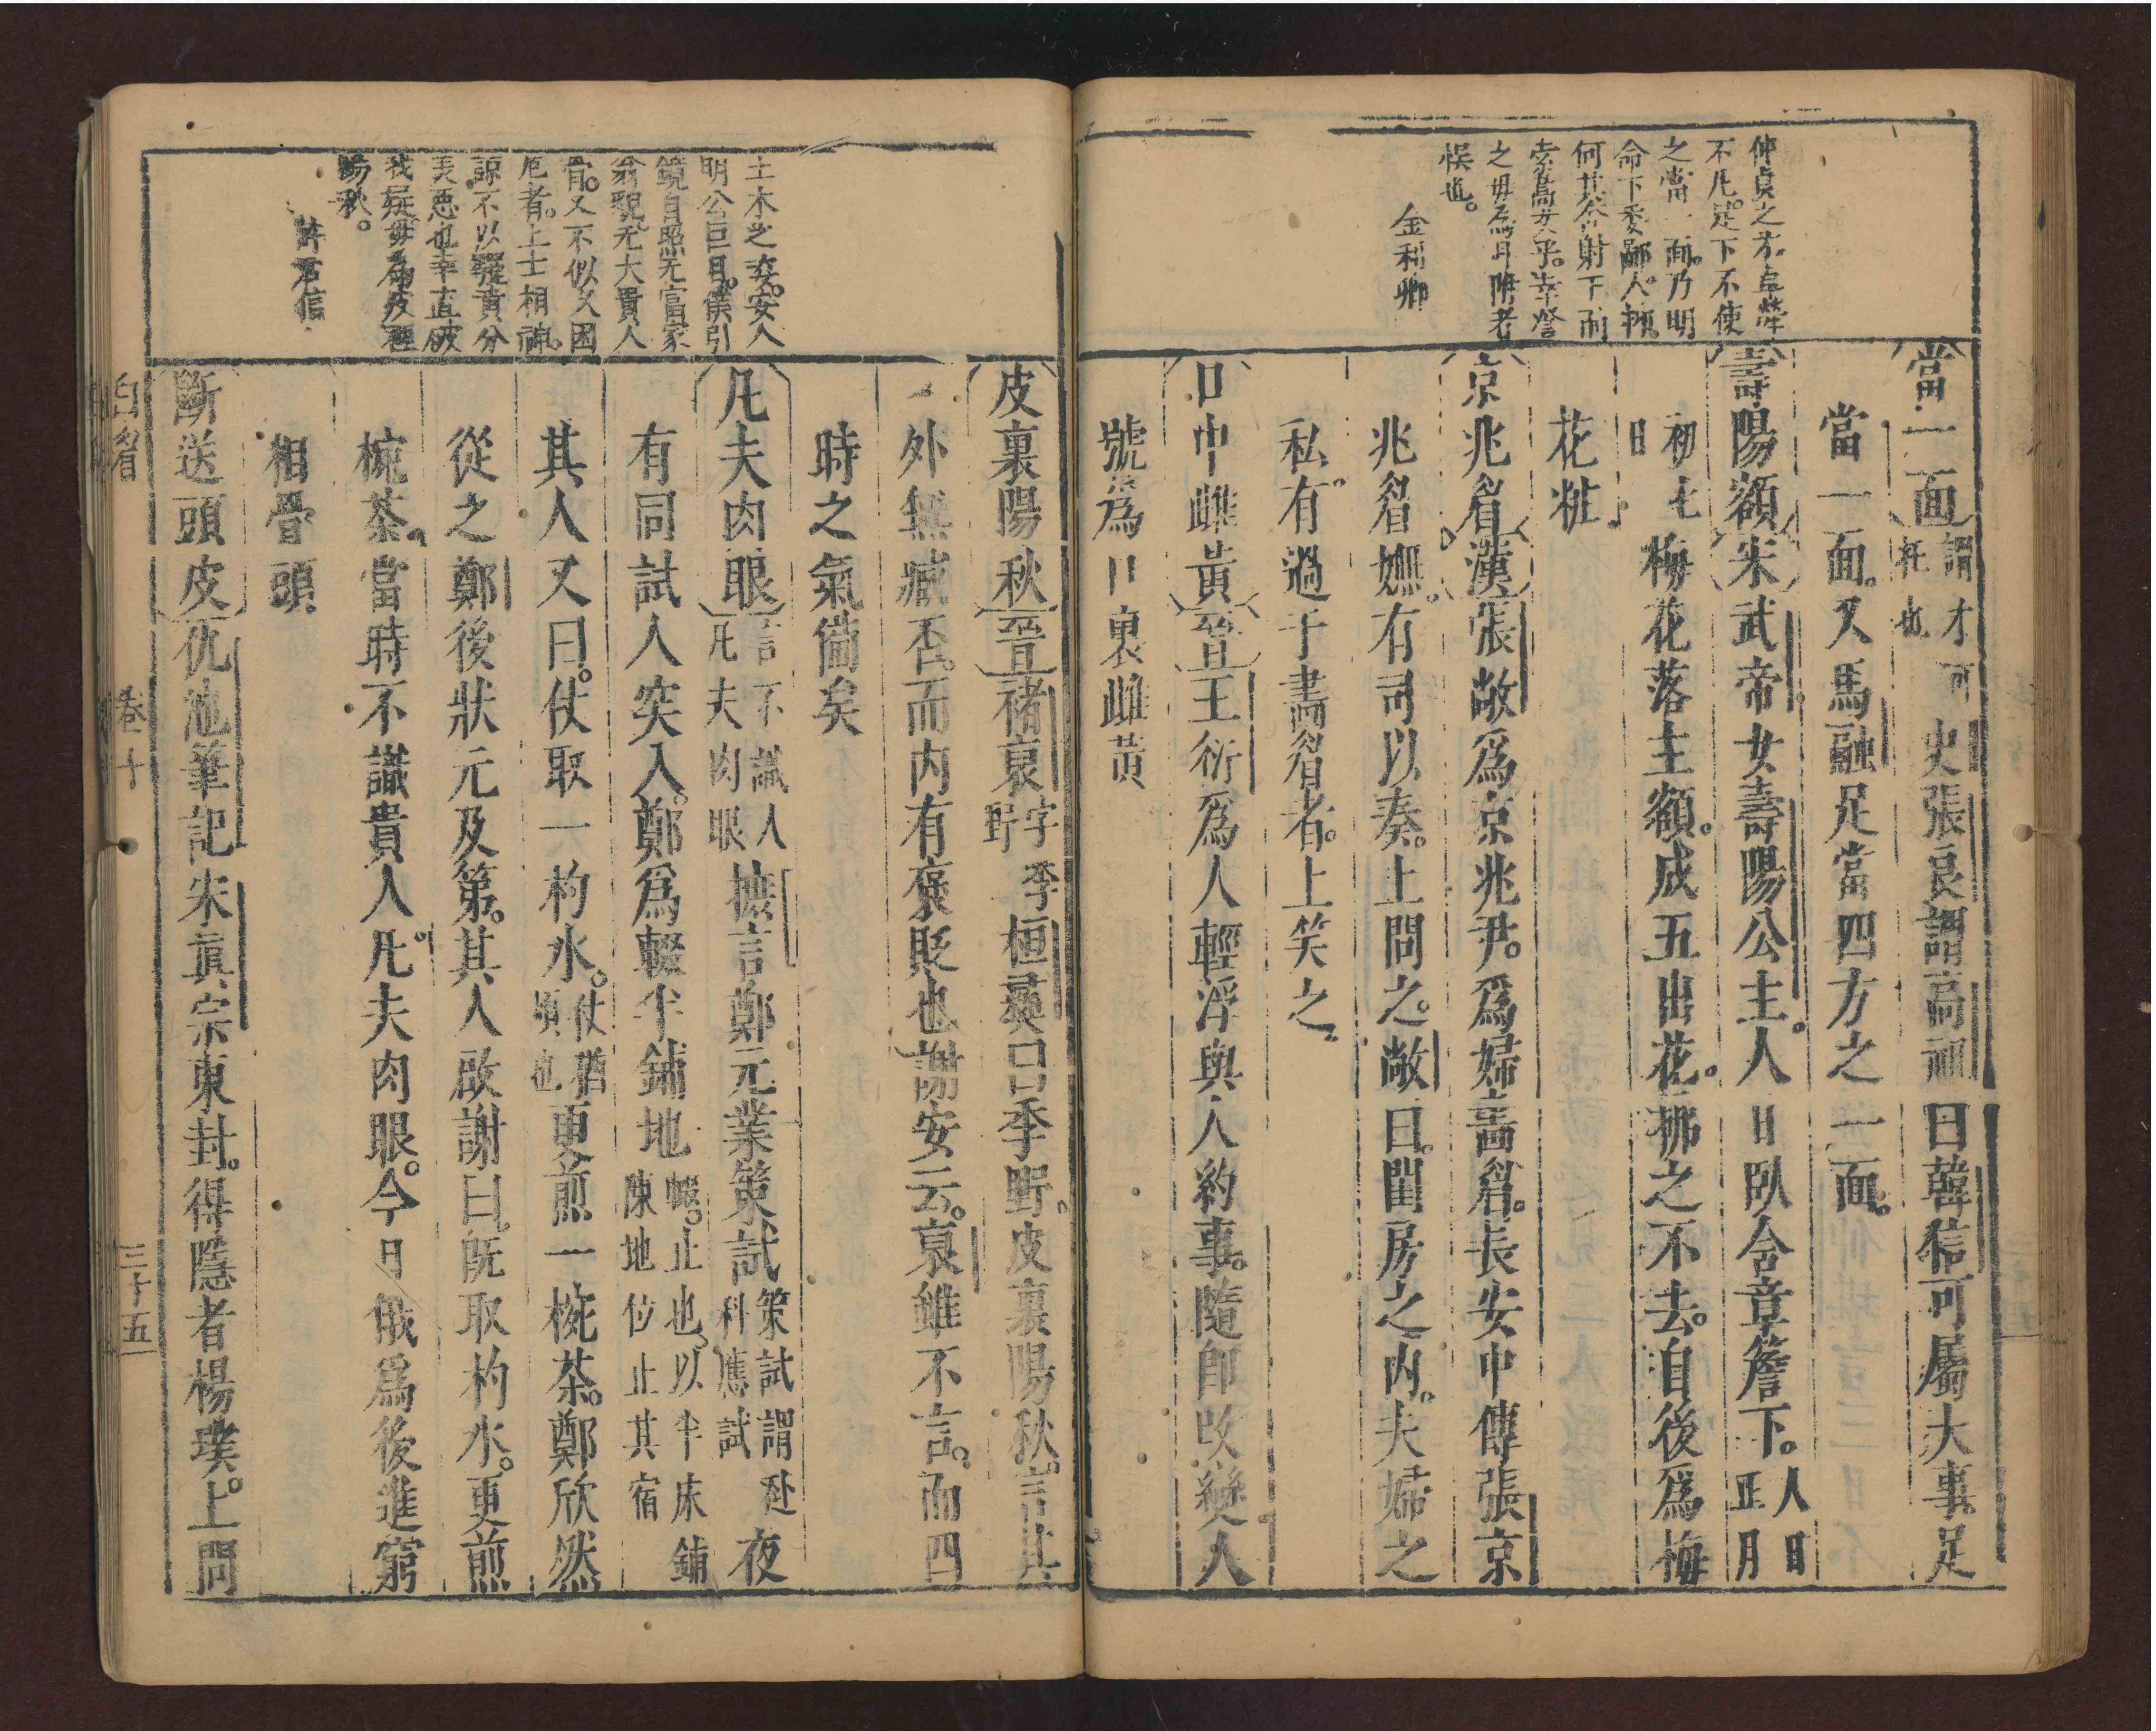 仲貞之才
不凡足下不使
之當一面乃明
命下委鄙人
何其令射下而
索高女乎幸詧
之毋為耳陳者
悮也
金利卿
當一面
謂才可
托也
史張良謂高祖曰韓信可屬大事足
當一面又馬融足當四方之一面
壽陽額
宋武帝女壽陽公主人日臥含章簷下
人日
正月
初七
日
梅花落主額成五出花拂之不去自後爲梅
花粧
京兆眉
漢張敞爲京兆尹爲婦畫眉長安中傳張京
兆眉嫵有司以奏上問之敞曰閨房之內夫婦之
私有過于畫眉者上笑之
口中雌黄
晉王衍爲人輕浮與人約事隨卽改變人
號爲口裏雌黃
土木之姿安入
明公巨目僕引
鏡自照无富家
翁貌无大貴人
骨又不似久困
厄者上士相
諒不以
美惡也幸直
我疑毋爲皮裡
陽秋
許君信
皮裏陽秋
晉褚裒
字季
野
桓彞曰季野皮裏陽秋言其
外無臧否而内有褒貶也謝安云裒雖不言而四
時之氣備矣
凡夫肉眼
言不識人
凡夫肉眼
摭言鄭元業策試
策試謂赴
科應試
夜
有同試人突入鄭爲輟半鋪地
輟止也以半床鋪
陳地位止其宿
其人又曰仗取一杓水
仗猶
煩也
更煎一椀茶鄭欣然
從之鄭後狀元及第其人啟謝曰旣取杓水更煎
椀茶當時不識貴人凡夫肉眼今日俄爲後進窮
相骨頭
斷送頭皮
仇池筆記宋眞宗東封得隱者楊璞上問
白眉
卷十
三十五